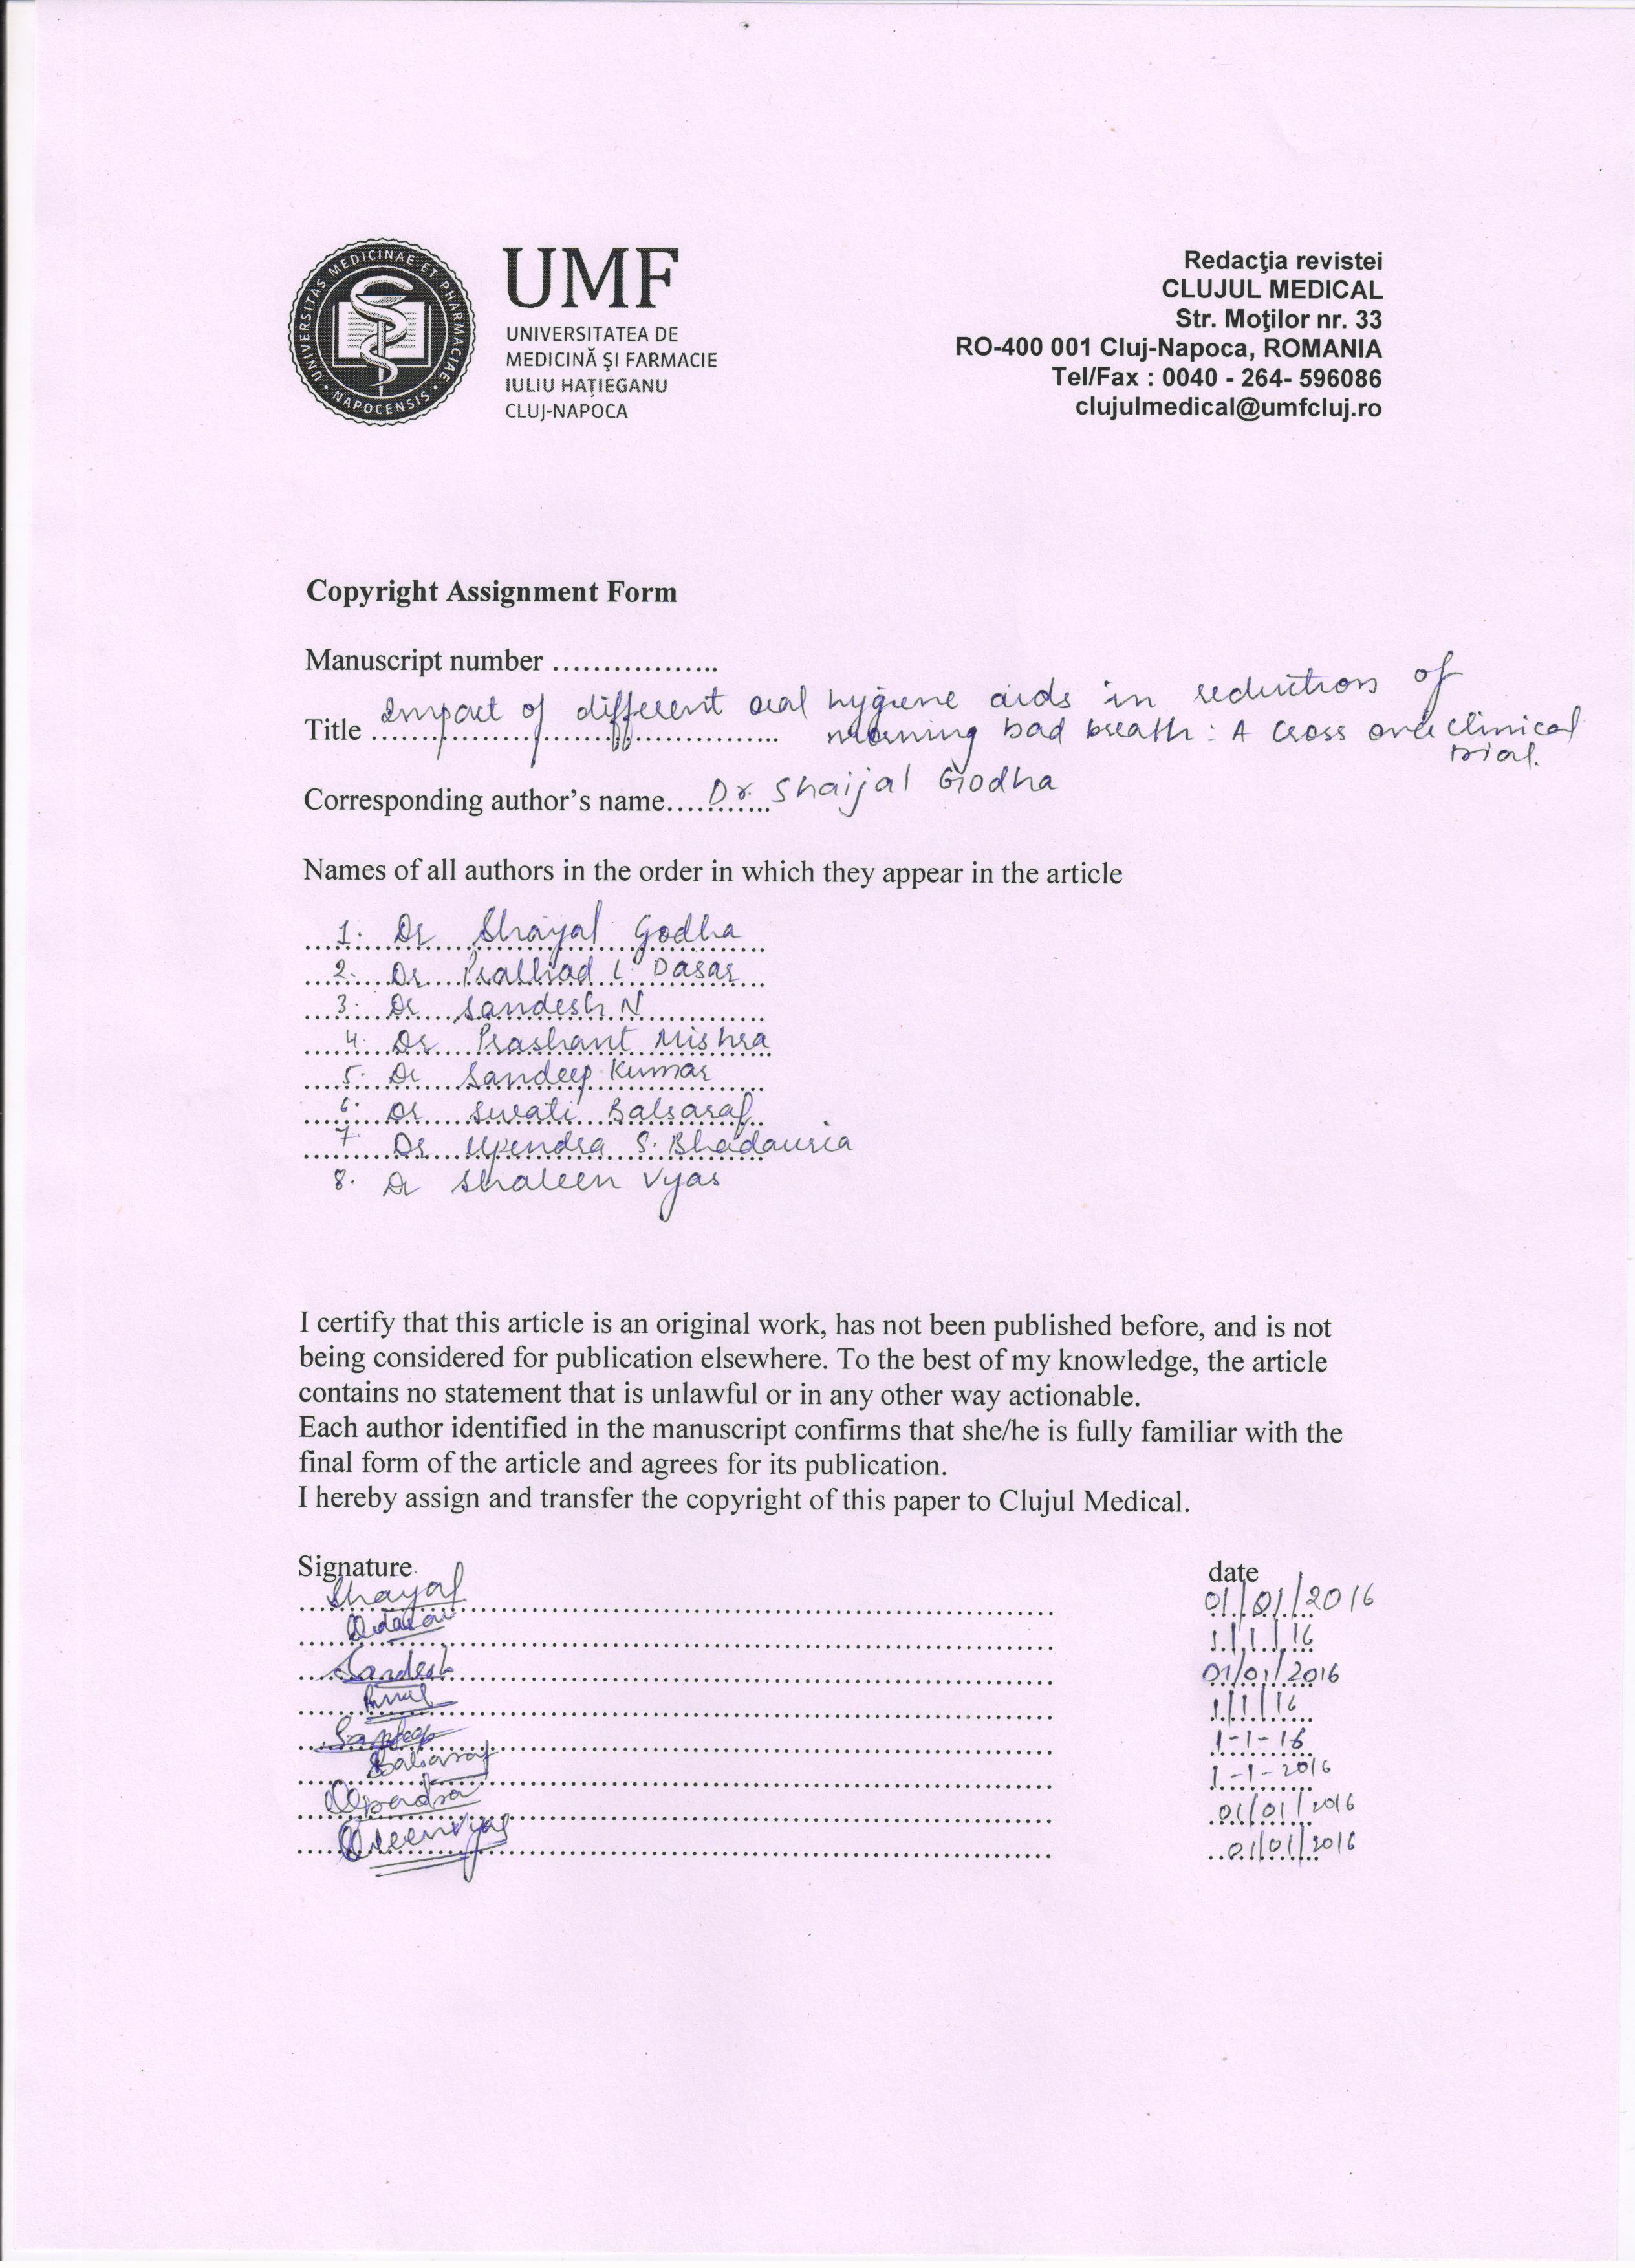 UNIVERSITAS MEDICINAE ET PHARMACIAE NAPOCENSIS
UMF
UNIVERSITATEA DE
MEDICINĂ ŞI FARMACIE
IULIU HAŢIEGANU
CLUJ-NAPOCA
Redacţia revistei
CLUJUL MEDICAL
Str. Moţilor nr. 33
RO-400 001 Cluj-Napoca, ROMANIA
Tel/Fax : 0040 - 264- 596086
clujulmedical@umfcluj.ro
Copyright Assignment Form
Manuscript number ……………..
Impact of different oral hygiene aids in reduction of
Title ……………………………………….. morning bad breath : A cross over clinical
trial.
Corresponding author’s name……….. Dr. Shaijal Godha
Names of all authors in the order in which they appear in the article
1. Dr Shaijal Godha
2. Dr Pralhad L. Dasar
3. Dr Sandesh N
4. Dr Prashant Mishra
5. Dr Sandeep Kumar
6. Dr Swati Balsaraf
7. Dr Upendra S. Bhadauria
8. Dr Shaleen Vyas
I certify that this article is an original work, has not been published before, and is not
being considered for publication elsewhere. To the best of my knowledge, the article
contains no statement that is unlawful or in any other way actionable.
Each author identified in the manuscript confirms that she/he is fully familiar with the
final form of the article and agrees for its publication.
I hereby assign and transfer the copyright of this paper to Clujul Medical.
Signature date
01/01/2016
1/1/16
Sandesh 01/01/2016
1/1/16
Sandeep 1-1-16
Balsaraf 1-1-2016
Upendra 01/01/2016
01/01/2016